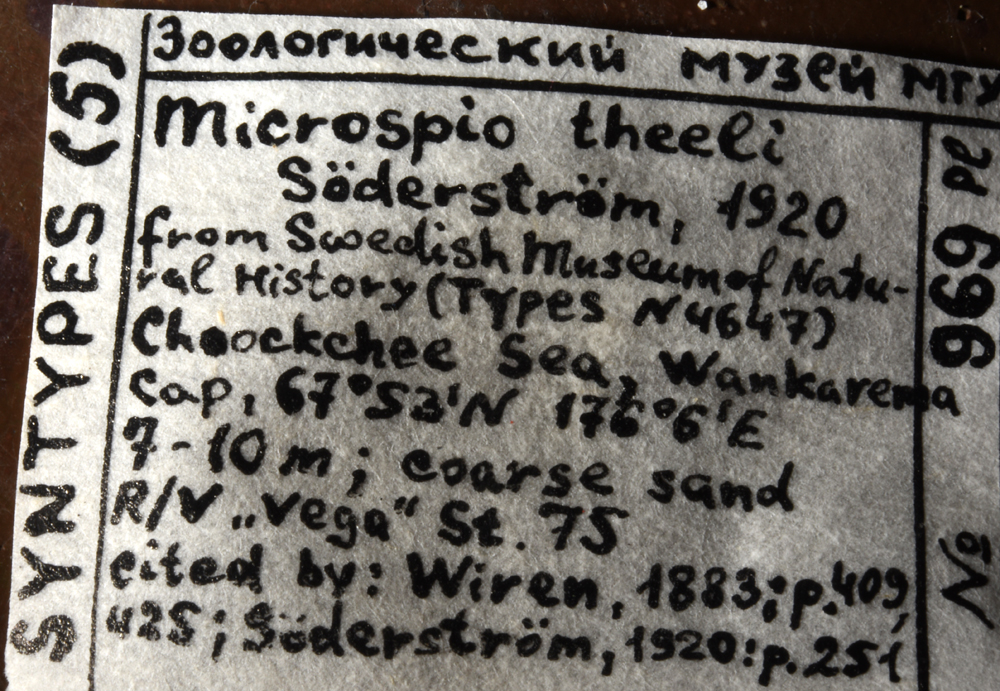 Зоологический музей МГУ
SYNTYPES (5)
Microspio theeli
Söderström, 1920
from Swedish Museum of Natu-
ral History (Types N4647)
Choockchee Sea, Wankarema
cap, 67°53'N 176°6'E
7-10 m; coarse sand
R/V „Vega“ St. 75
cited by: Wiren, 1883; p.409,
425; Söderström, 1920: p.251
№ 969 Pl